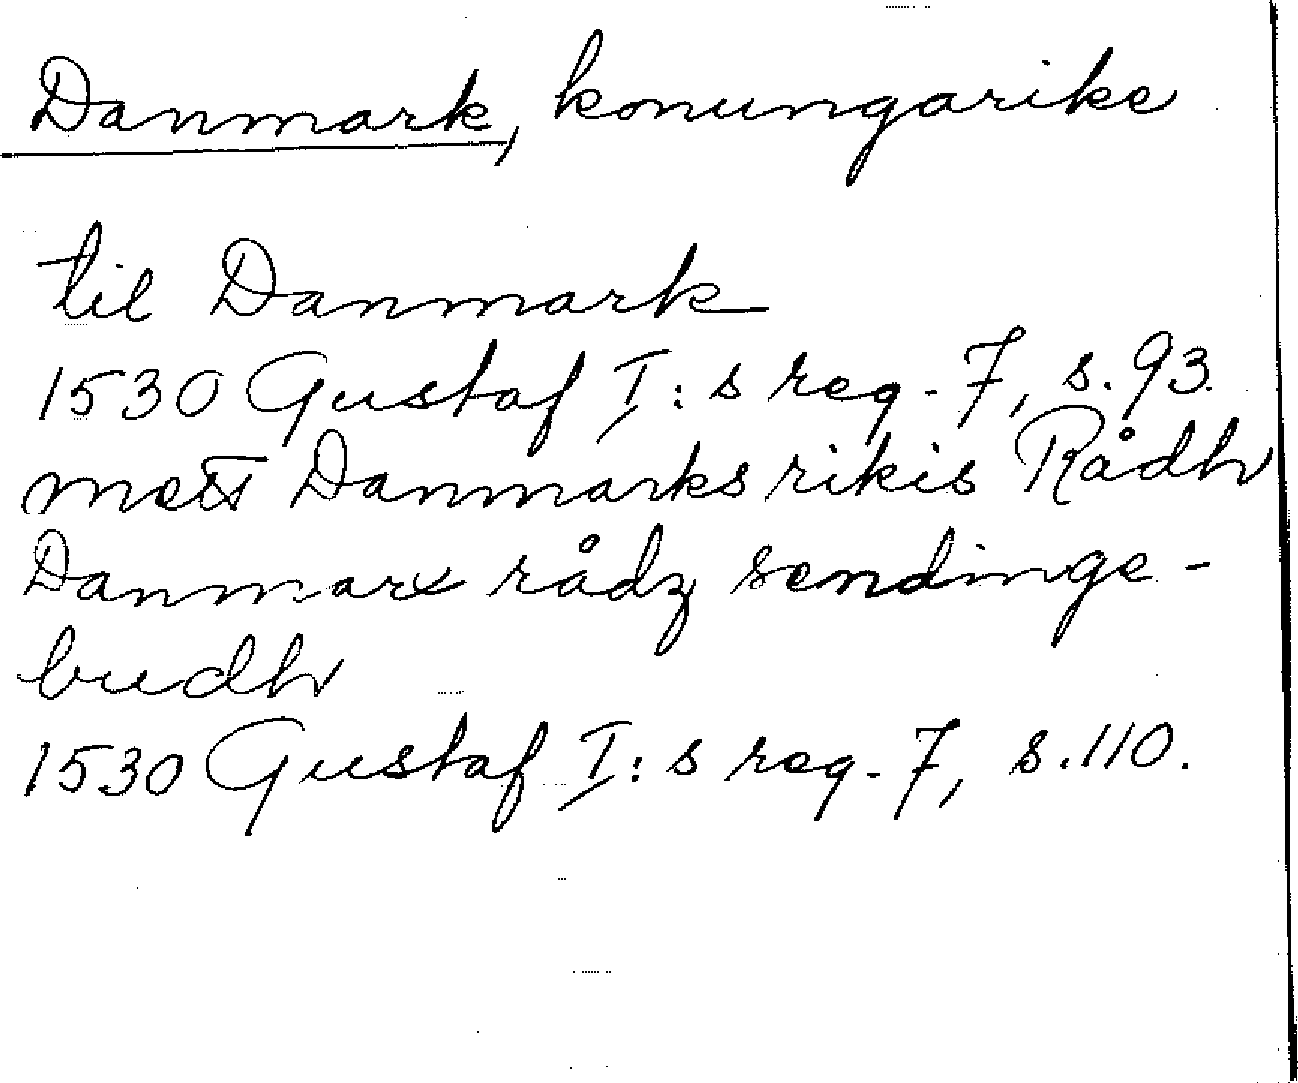 Danmark, konungarike
til Danmark
1530 Gustaf I:s reg. 7, s. 93.
mett Danmarks rikis Rådh
Danmarx rådz sendinge-
budh
1530 Gustaf I:s reg. 7, s. 110.